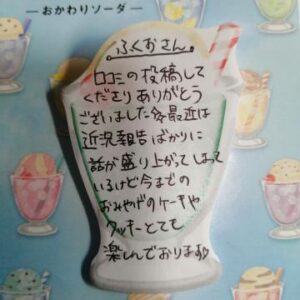 —おかわりソーダ—
ふくおさん
口コミの投稿して
くださりありがとう
ございました
最近は
近況報告ばかりに
話が盛り上がってしまって
いるけど今までの
おみやげのケーキや
クッキーとても
楽しんでおります